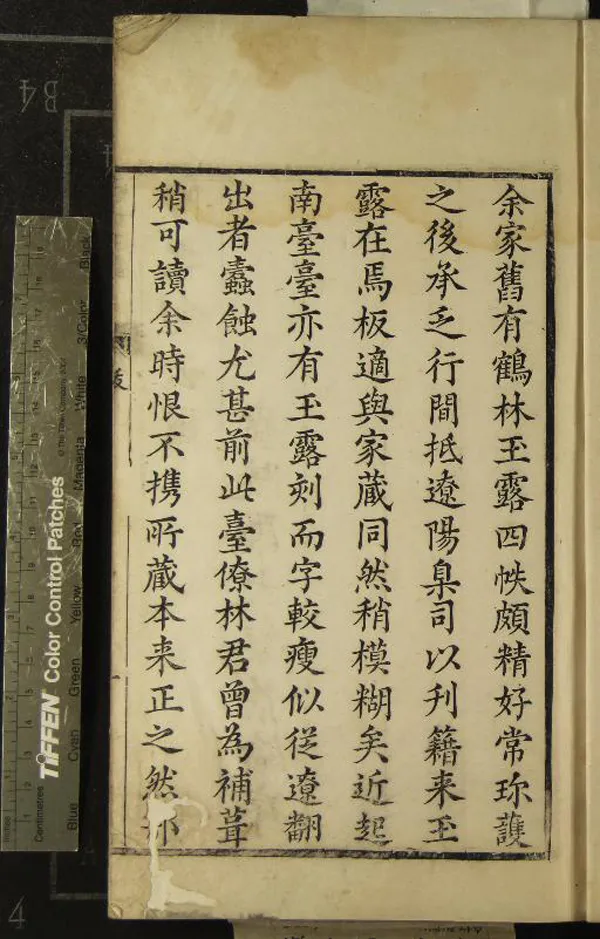 余家舊有鶴林玉露四帙頗精好常珎護
之後承乏行間抵遼陽臬司以刋籍来玉
露在焉板適與家蔵同然稍模糊矣近起
南臺臺亦有玉露刻而字較瘦似従遼翻
出者蠹蝕尤甚前此臺僚林君曾為補葺
稍可讀余時恨不携所蔵本来正之然
TIFFEN Color Control Patches
© The Tiffen Company
Centimetres
Blue Cyan Green Yellow Red Magenta White 3/Color Black
B4
4